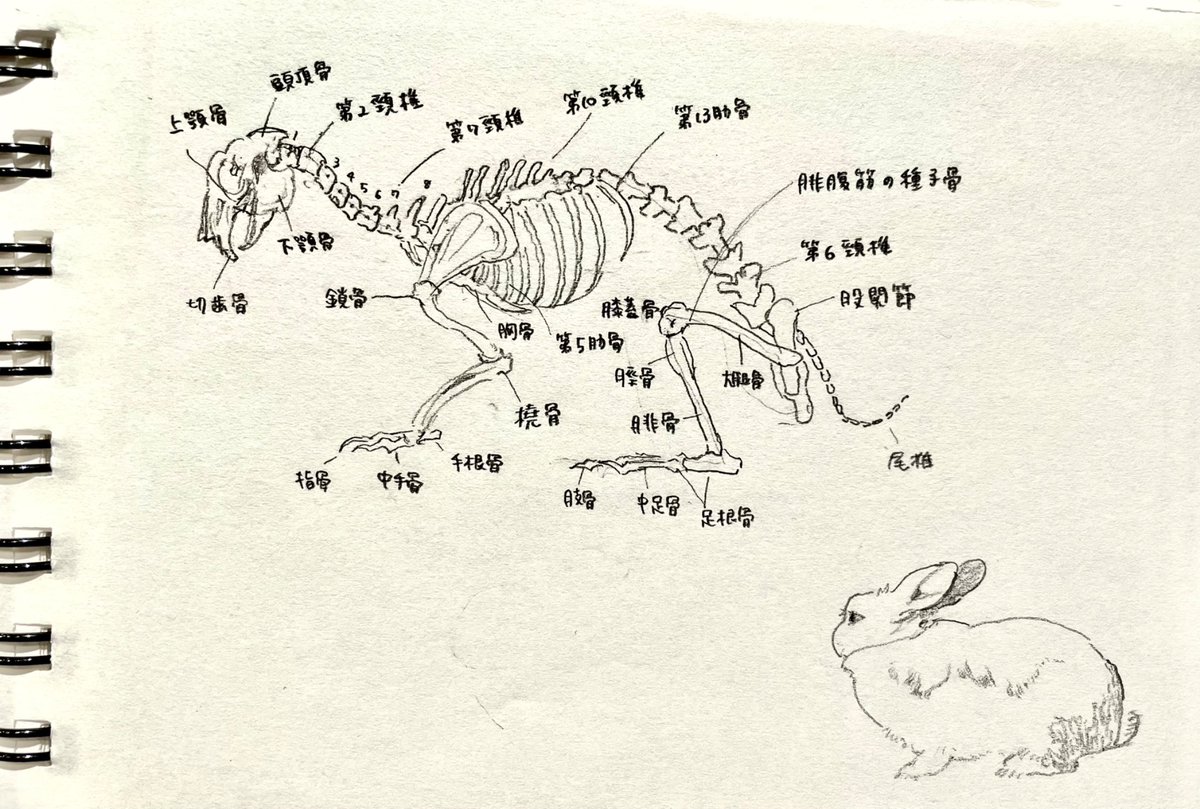 頭頂骨
上顎骨
第2頸椎
第7頸椎
第10頸椎
第13肋骨
1
3
4
5
6
7
8
腓腹筋の種子骨
下顎骨
第6頸椎
切歯骨
鎖骨
胸骨
第5肋骨
膝蓋骨
股関節
脛骨
大腿骨
撓骨
腓骨
指骨
中手骨
手根骨
中足骨
足根骨
尾椎